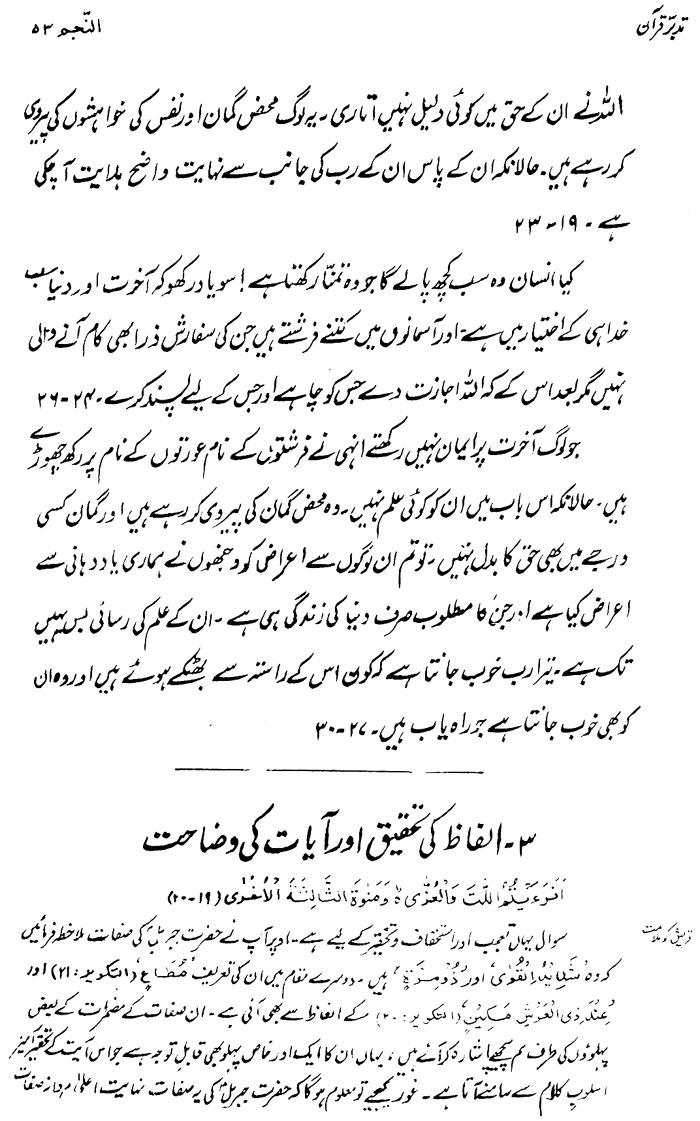 تدبّر قرآن
النّجم ۵۳
اللہ نے ان کے حق میں کوئی دلیل نہیں اتاری۔ یہ لوگ محض گمان اور نفس کی خواہشوں کی پیروی
کر رہے ہیں۔ حالانکہ ان کے پاس ان کے رب کی جانب سے نہایت واضح ہدایت آ چکی
ہے ۔ ۱۹-۲۳
کیا انسان وہ سب کچھ پا لے گا جو وہ تمنّا رکھتا ہے! سو یاد رکھو کہ آخرت اور دنیا سب
خدا ہی کے اختیار میں ہے۔ اور آسمانوں میں کتنے فرشتے ہیں جن کی سفارش ذرا بھی کام آنے والی
نہیں مگر بعد اس کے کہ اللہ اجازت دے جس کو چاہے اور جس کے لیے پسند کرے۔ ۲۴-۲۶
جو لوگ آخرت پر ایمان نہیں رکھتے انہی نے فرشتوں کے نام عورتوں کے نام پر رکھ چھوڑے
ہیں۔ حالانکہ اس باب میں ان کو کوئی علم نہیں۔ وہ محض گمان کی پیروی کر رہے ہیں اور گمان کسی
درجے میں بھی حق کا بدل نہیں۔ تو تم ان لوگوں سے اعراض کرو جنھوں نے ہماری یاد دہانی سے
اعراض کیا ہے اور جن کا مطلوب صرف دنیا کی زندگی ہی ہے ۔ ان کے علم کی رسائی بس یہیں
تک ہے۔ تیرا رب خوب جانتا ہے کہ کون اس کے راستہ سے بھٹکے ہوئے ہیں اور وہ ان
کو بھی خوب جانتا ہے جو راہ یاب ہیں۔ ۲۷-۳۰
۳۔ الفاظ کی تحقیق اور آیات کی وضاحت
اَفَرَءَيْتُمُ اللّٰتَ وَالْعُزّٰى ہ وَمَنٰوةَ الثَّالِثَةَ الْاُخْرٰى (۱۹-۲۰)
قریش کو ملامت
سوال یہاں تعجب اور استخفاف و تحقیر کے لیے ہے۔ اوپر آپ نے حضرت جبریلؑ کی صفات ملاحظہ فرمائیں
کہ وہ شَدِيْدُ الْقُوٰى اور ذُوْ مِرَّةٍ ہیں ۔ دوسرے مقام میں ان کی تعریف مُطَاعٍ (التکویر: ۲۱) اور
عِنْدَ ذِى الْعَرْشِ مَكِيْنٍ (التکویر: ۲۰) کے الفاظ سے بھی آئی ہے ۔ ان صفات کے مضمرات کے بعض
پہلوؤں کی طرف ہم پیچھے اشارہ کر آئے ہیں، یہاں ان کا ایک اور خاص پہلو بھی قابلِ توجہ ہے جو اس آیت کے تحقیر آمیز
اسلوبِ کلام سے سامنے آتا ہے ۔ غور کیجیے تو معلوم ہو گا کہ حضرت جبریلؑ کی یہ صفات نہایت اعلیٰ مردانہ صفات